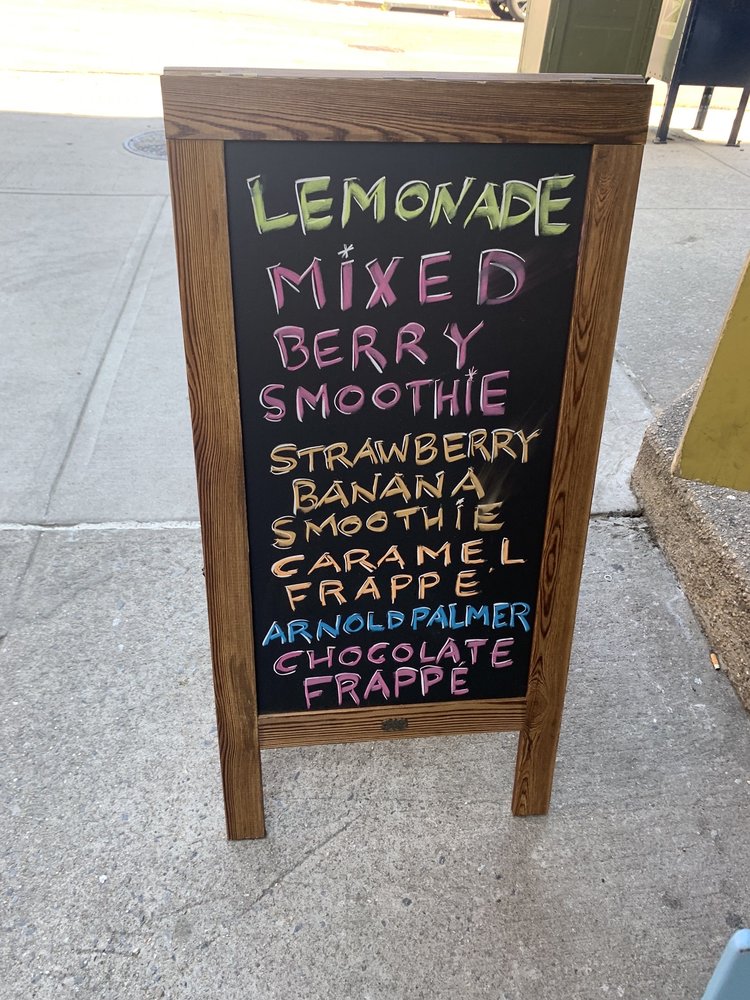 LEMONADE
MIXED
BERRY
SMOOTHIE
STRAWBERRY
BANANA
SMOOTHIE
CARAMEL
FRAPPÉ
ARNOLD PALMER
CHOCOLATE
FRAPPÉ